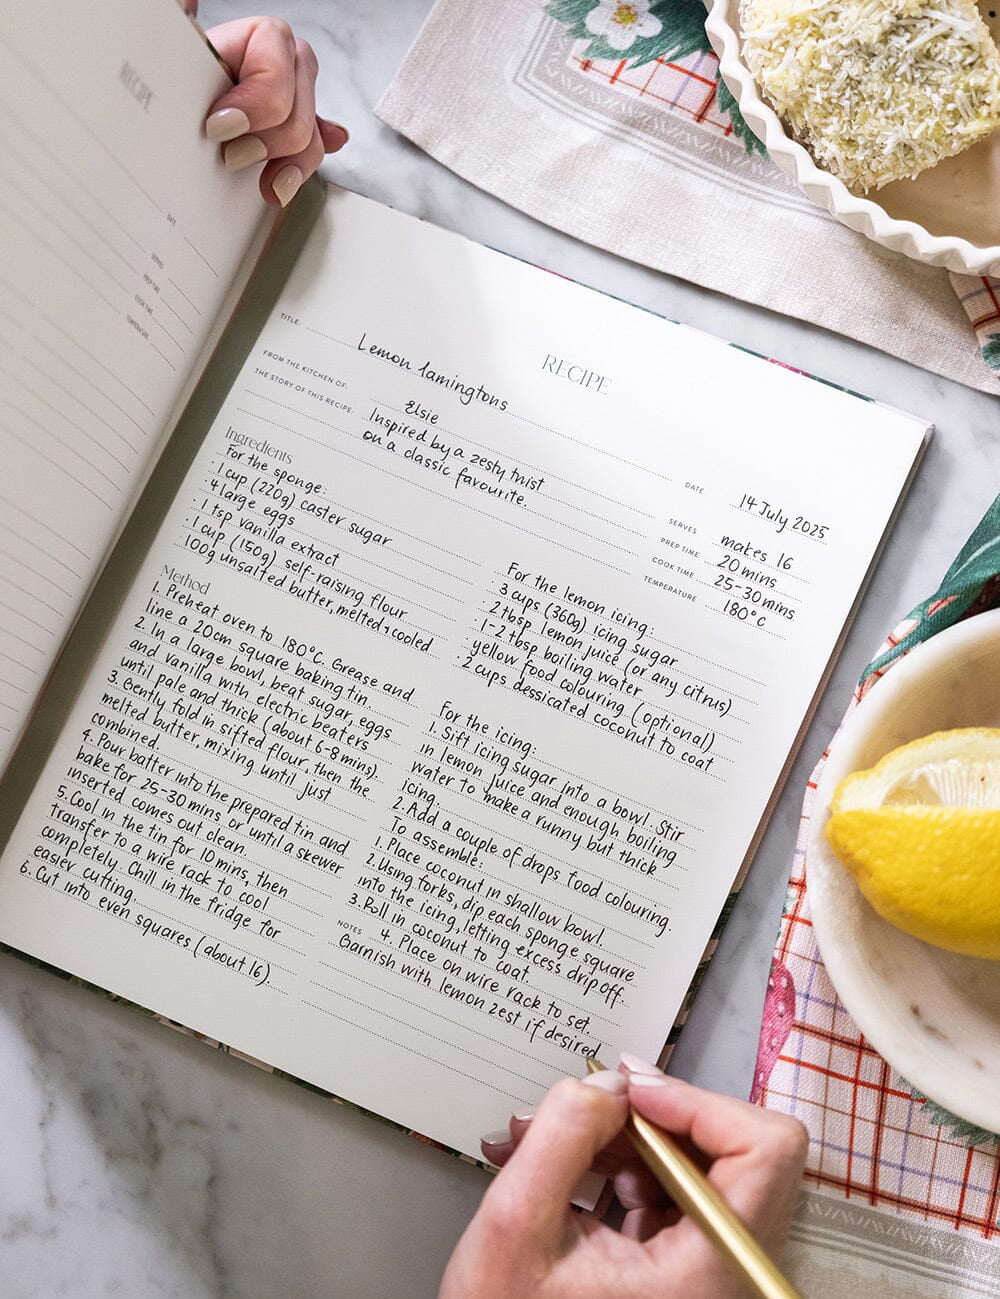 RECIPE
DATE
SERVES
PREP TIME
COOK TIME
TEMPERATURE
RECIPE
TITLE: Lemon lamingtons
FROM THE KITCHEN OF: Elsie
THE STORY OF THIS RECIPE: Inspired by a zesty twist
on a classic favourite.
DATE 14 July 2025
SERVES makes 16
PREP TIME 20 mins
COOK TIME 25-30 mins
TEMPERATURE 180°C
Ingredients
For the sponge:
· 1 cup (220g) caster sugar
· 4 large eggs
· 1 tsp vanilla extract
· 1 cup (150g) self-raising flour
100g unsalted butter, melted + cooled
For the lemon icing:
· 3 cups (360g) icing sugar
· 2 tbsp lemon juice (or any citrus)
· 1-2 tbsp boiling water
· yellow food colouring (optional)
2 cups dessicated coconut to coat
Method
1. Preheat oven to 180°C. Grease and
line a 20cm square baking tin.
2. In a large bowl, beat sugar, eggs
and vanilla with electric beaters
until pale and thick (about 6-8 mins).
3. Gently fold in sifted flour, then the
melted butter, mixing until just
combined.
4. Pour batter into the prepared tin and
bake for 25-30 mins or until a skewer
inserted comes out clean.
5. Cool in the tin for 10 mins, then
transfer to a wire rack to cool
completely. Chill in the fridge for
easier cutting.
6. Cut into even squares (about 16).
For the icing:
1. Sift icing sugar into a bowl. Stir
in lemon juice and enough boiling
water to make a runny but thick
icing.
2. Add a couple of drops food colouring.
To assemble:
1. Place coconut in shallow bowl.
2. Using forks, dip each sponge square
into the icing, letting excess drip off.
3. Roll in coconut to coat
NOTES 4. Place on wire rack to set.
Garnish with lemon zest if desired